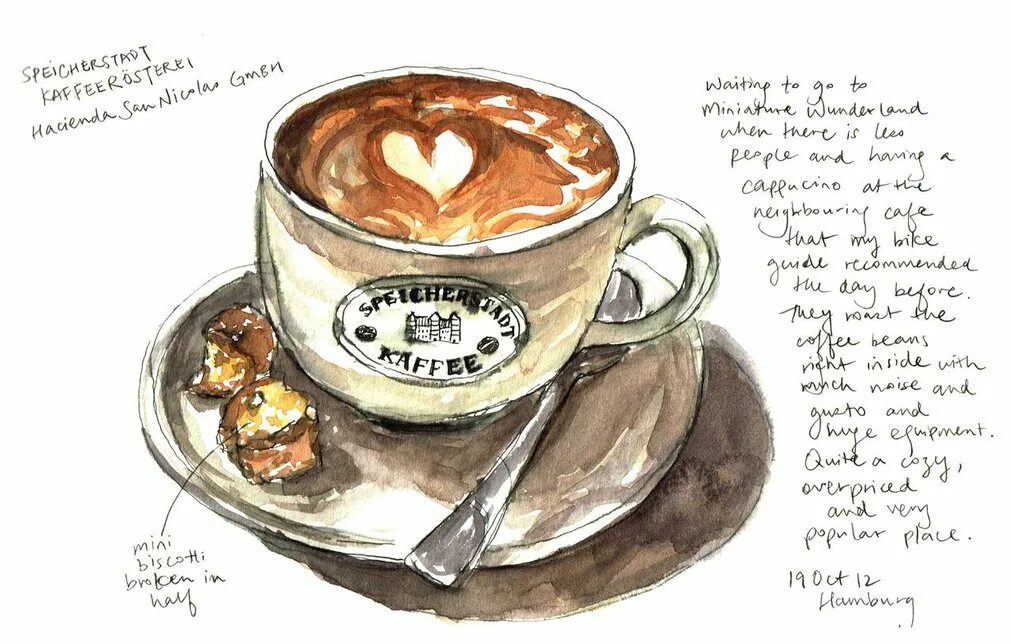 SPEICHERSTADT
KAFFEERÖSTEREI
Hacienda San Nicolas GmbH
Waiting to go to
Miniature Wunderland
when there is less
people and having a
cappucino at the
neighbouring cafe
that my bike
guide recommended
the day before.
They roast the
coffee beans
right inside with
much noise and
gusto and
huge equipment.
Quite a cozy,
overpriced
and very
popular place.
19 Oct 12
Hamburg
SPEICHERSTADT
KAFFEE
mini
biscotti
broken in
half